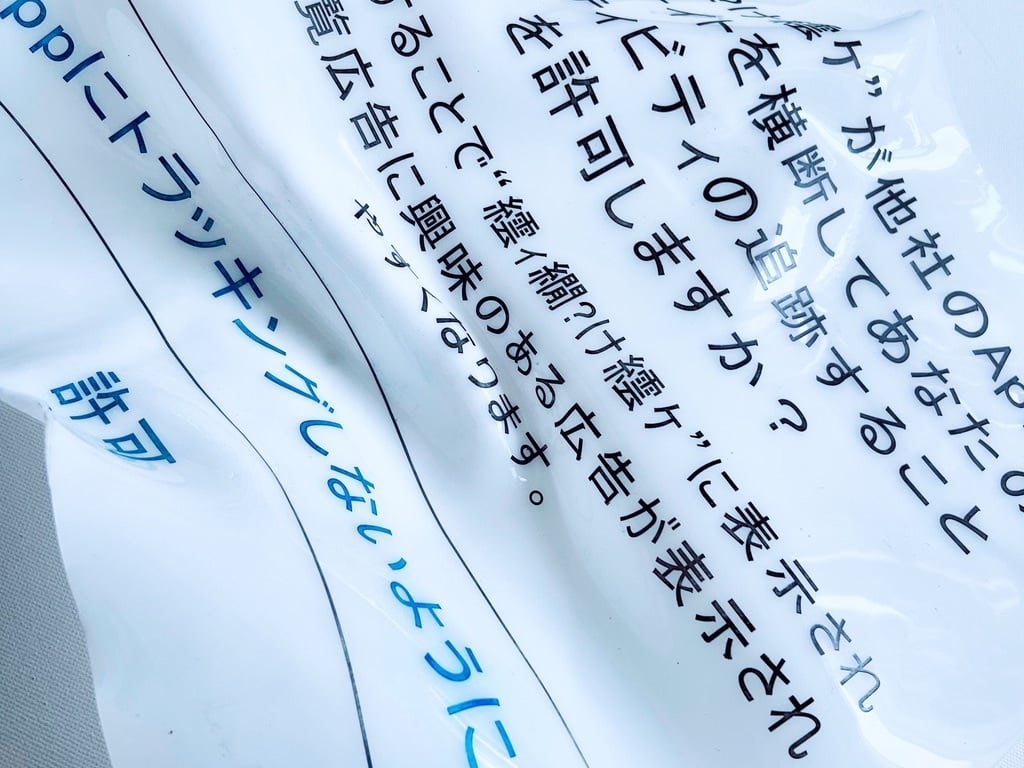 ケ”が他社のAp
を横断してあなたの
ィビティの追跡すること
を許可しますか？
することで“繧ィ繝?け繧ケ”に表示され
覧広告に興味のある広告が表示され
やすくなります。
Appにトラッキングしないように
許可